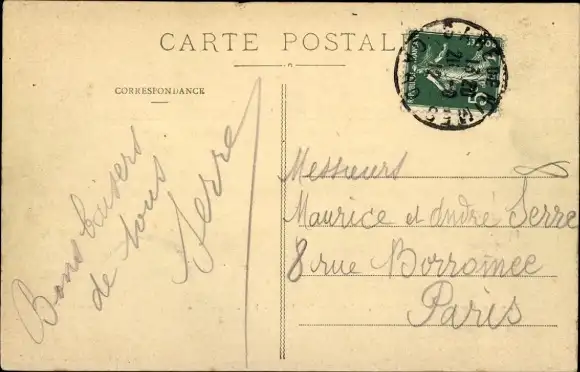 CARTE POSTALE
CORRESPONDANCE
Bons baisers
de tous
Serre
Messieurs
Maurice et André Serre
8 rue Borromée
Paris
5
GARE